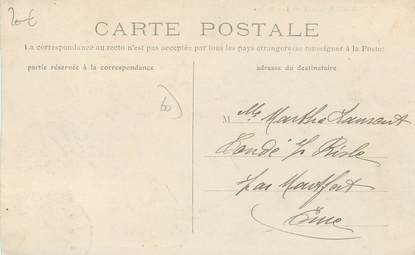 20€
CARTE POSTALE
La correspondance au recto n'est pas acceptée par tous les pays étrangers (se renseigner à la Poste)
partie réservée à la correspondance
adresse du destinataire
60
M Marthe Laurent
par Montfort
Eure